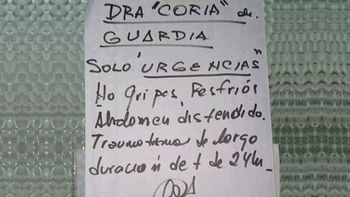 DRA "CORIA" de.
GUARDIA
SOLO "URGENCIAS"
No gripes, Resfrios
Abdomen distendido.
Traumatismo de largo
duración de + de 24hs_